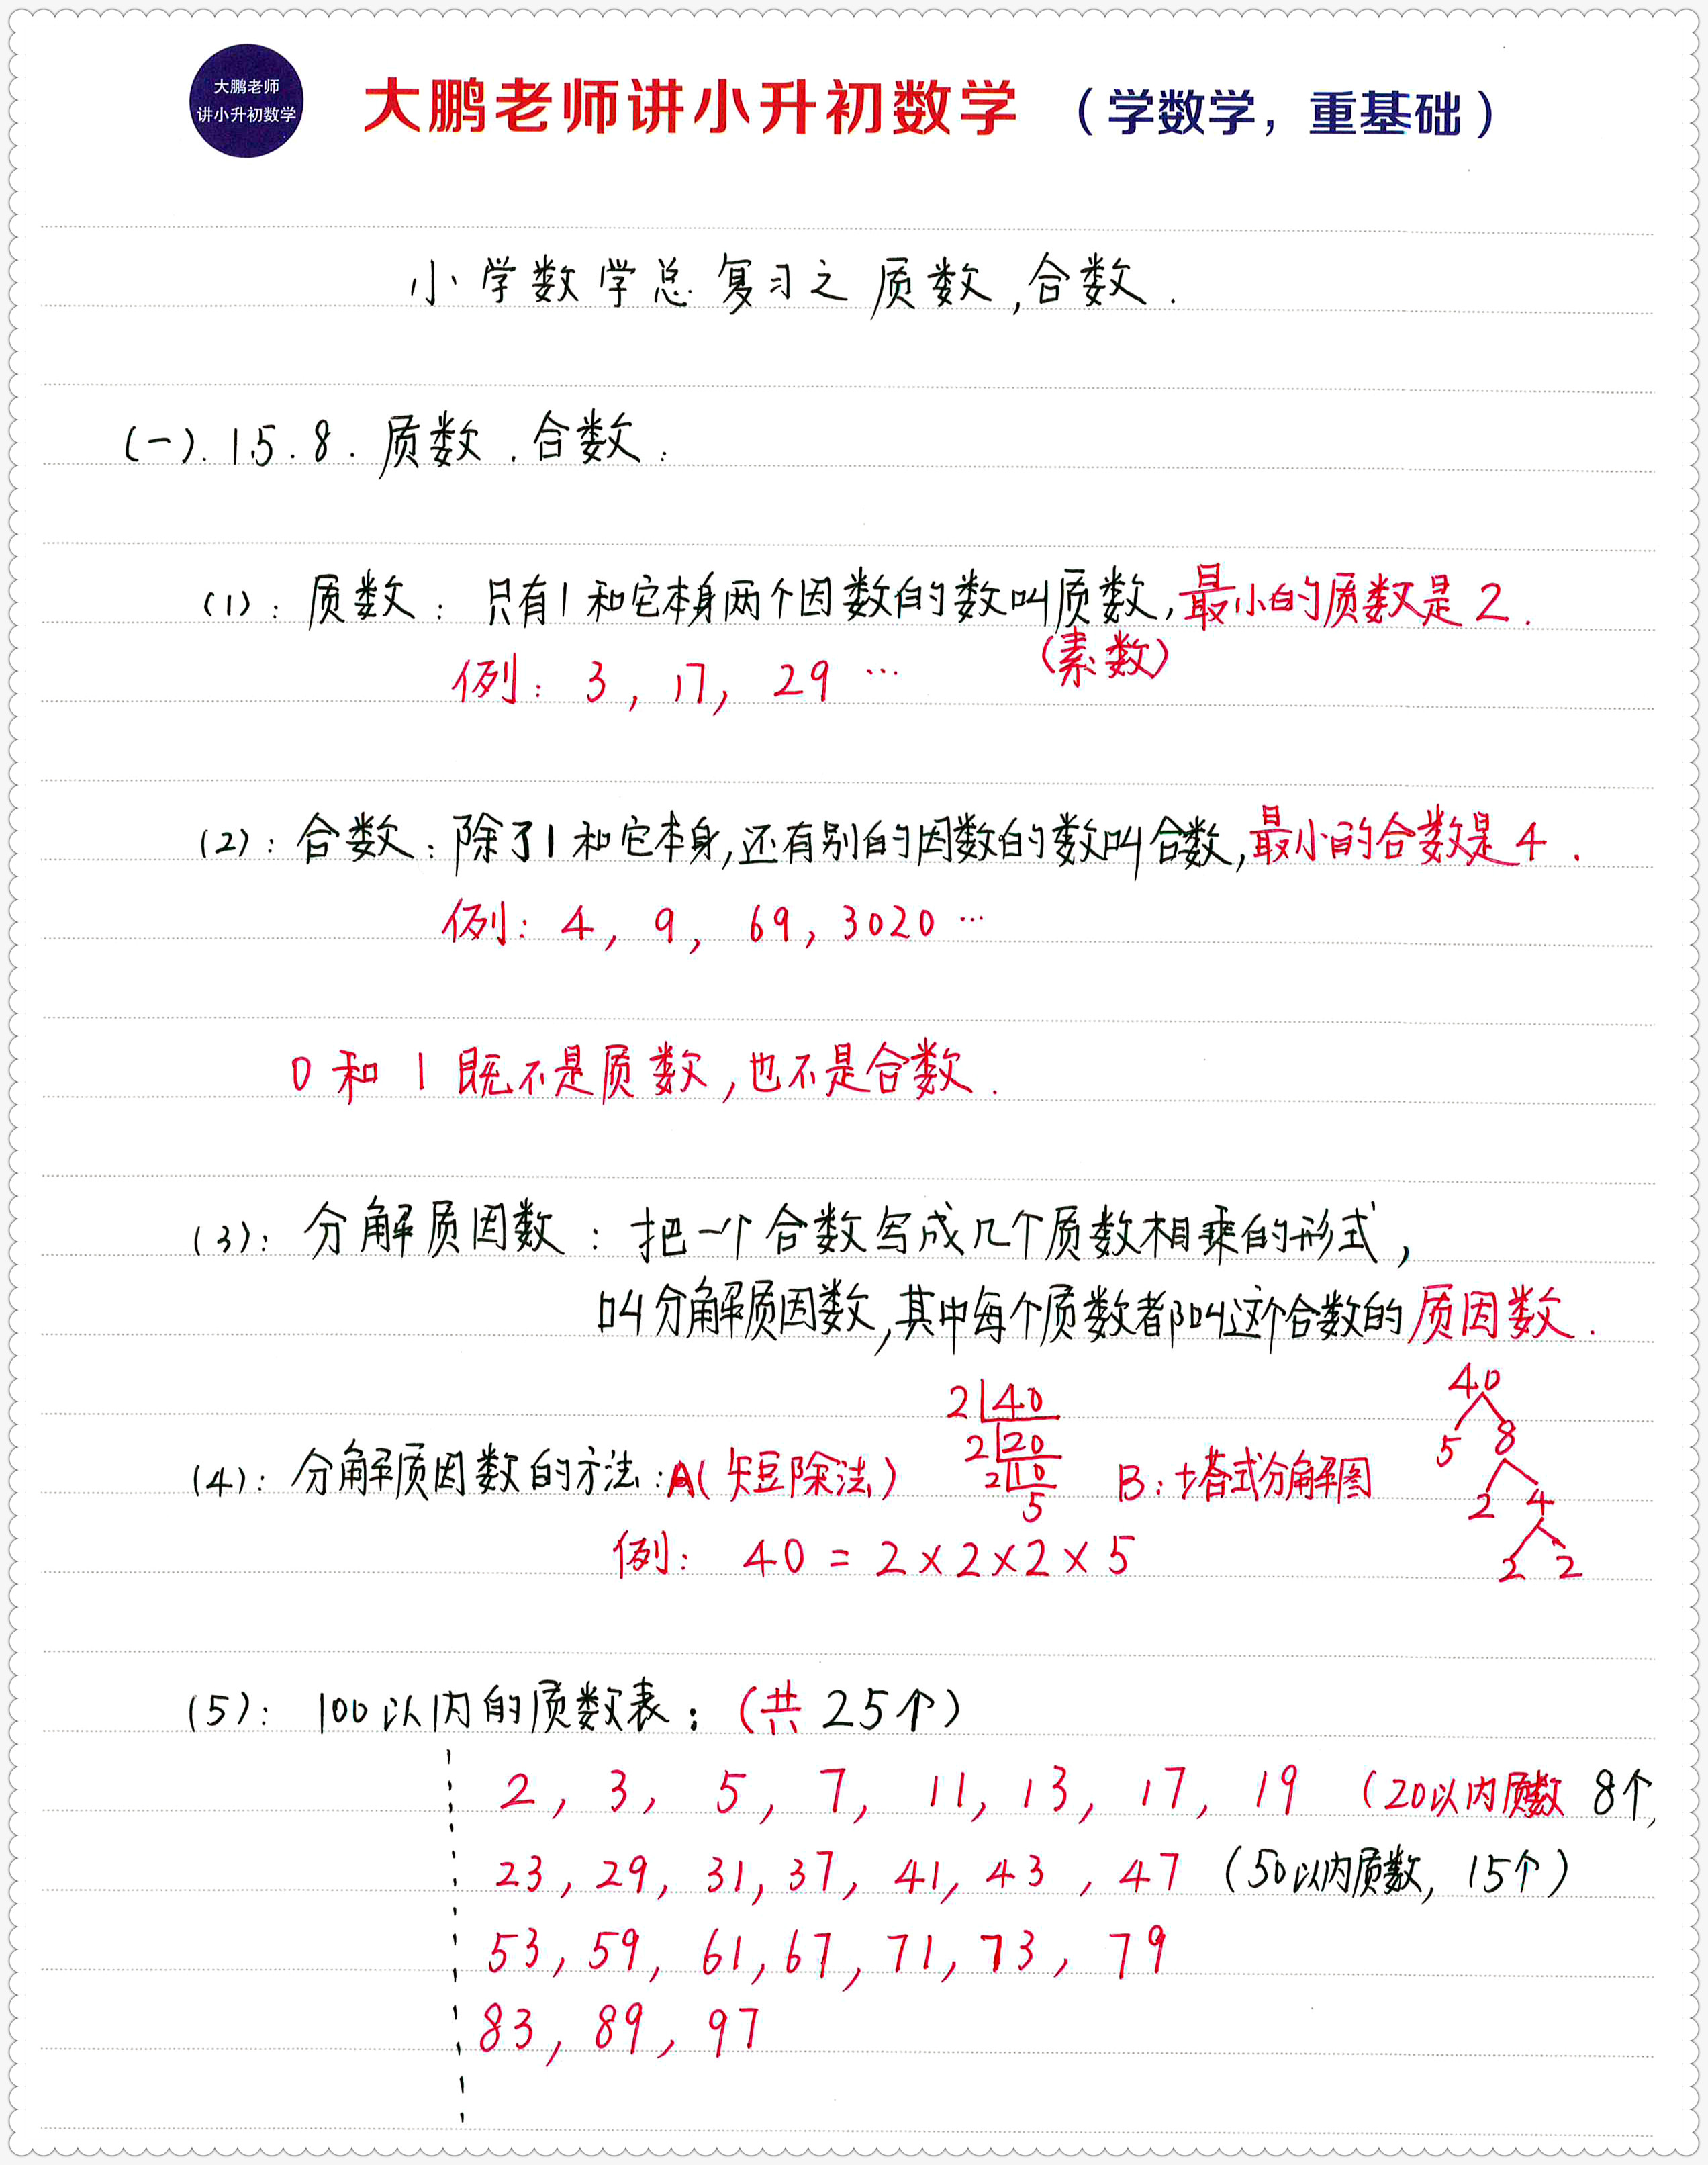 大鹏老师
讲小升初数学
大鹏老师讲小升初数学 （学数学，重基础）
小学数学总复习之质数,合数.
(一).15.8.质数.合数:
(1): 质数: 只有1和它本身两个因数的数叫质数,最小的质数是2.
(素数)
例: 3, 17, 29 …
(2): 合数: 除了1和它本身,还有别的因数的数叫合数,最小的合数是4.
例: 4, 9, 69, 3020 …
0和1既不是质数,也不是合数.
(3): 分解质因数: 把一个合数写成几个质数相乘的形式,
叫分解质因数,其中每个质数都叫这个合数的质因数.
(4): 分解质因数的方法:A(短除法)
2 40
2 20
2 10
5
B:塔式分解图
40
5 8
2 4
2 2
例: 40 = 2×2×2×5
(5): 100以内的质数表: (共25个)
2, 3, 5, 7, 11, 13, 17, 19 (20以内质数 8个,
23, 29, 31, 37, 41, 43, 47 (50以内质数, 15个)
53, 59, 61, 67, 71, 73, 79
83, 89, 97